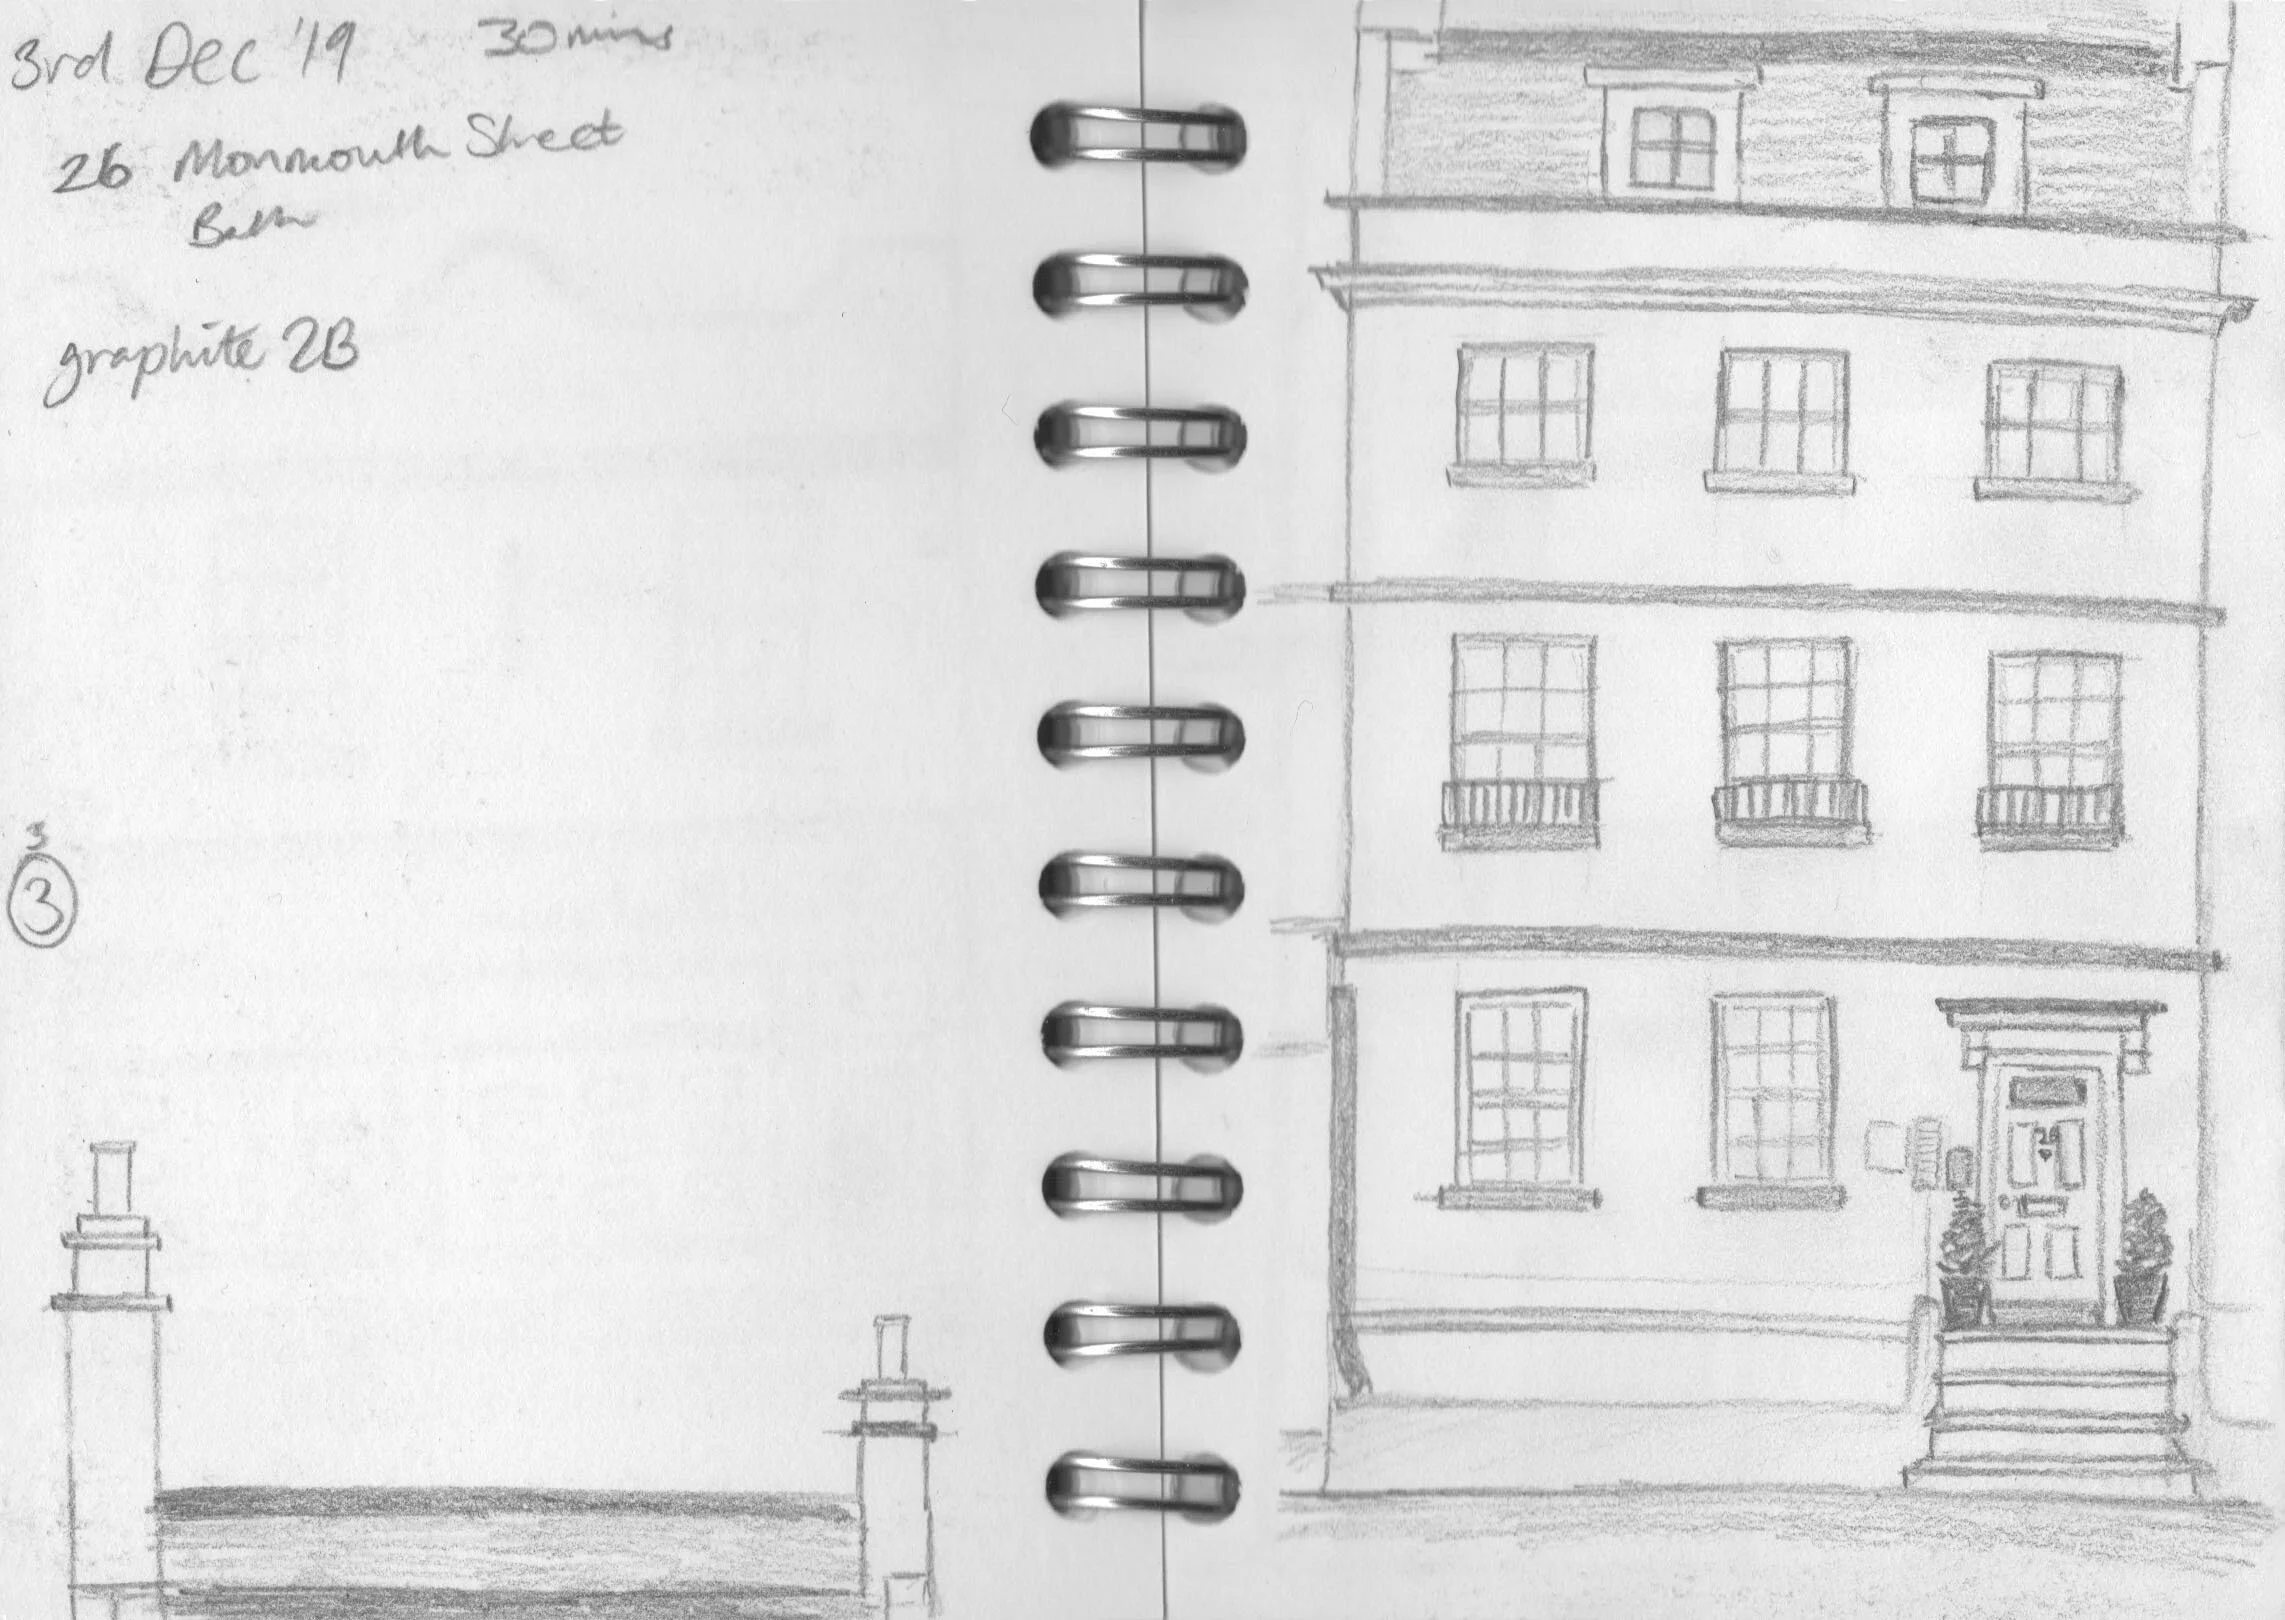 3rd Dec '19 30 mins
26 Monmouth Street
Bath
graphite 2B
3
3
26